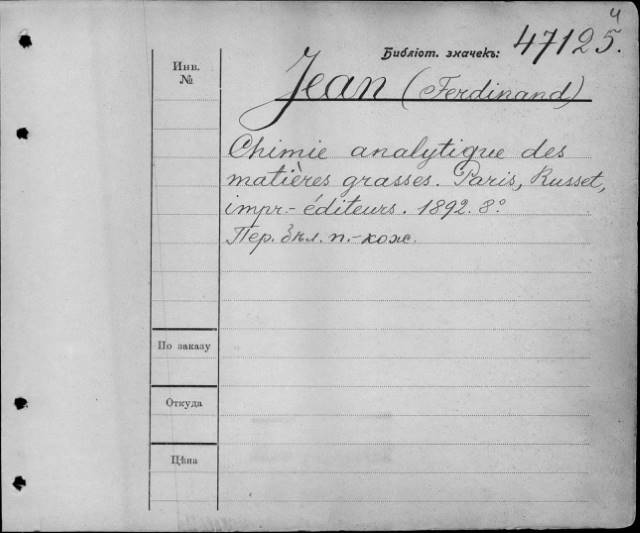 4
Библіот. значекъ: 47125.
Инв.
№
Jean (Ferdinand)
Chimie analytique des
matières grasses. Paris, Russet,
impr.- éditeurs. 1892. 8º
Пер. бѣл. п.-кож.
По заказу
Откуда
Цѣна